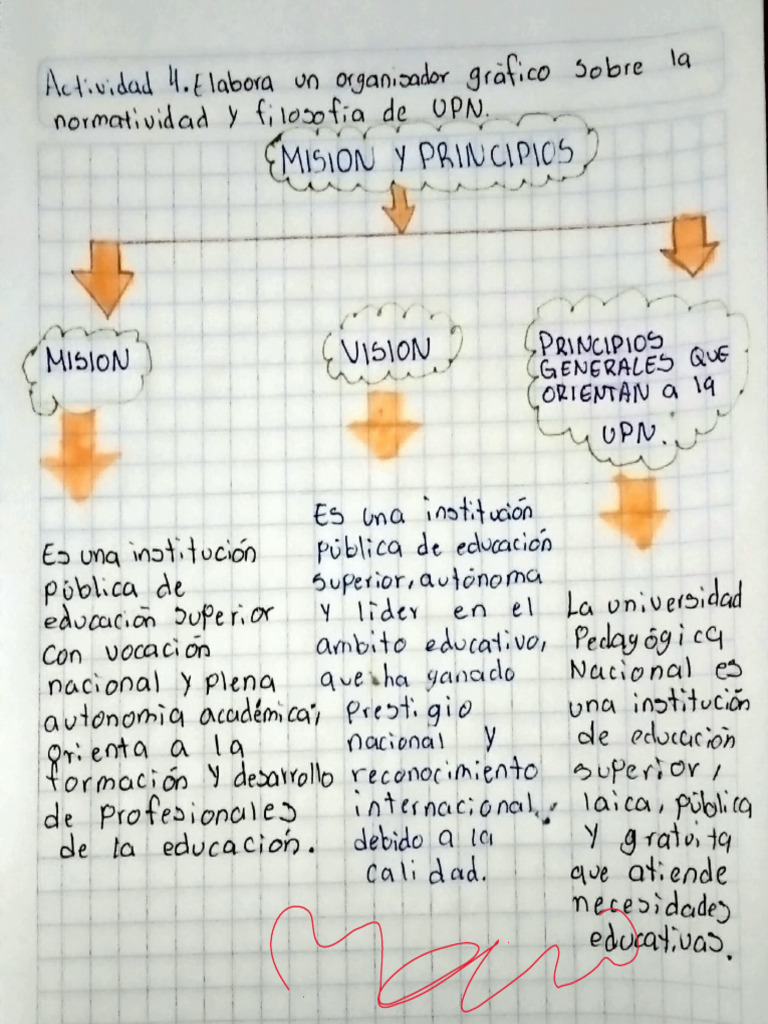 Actividad 4. Elabora un organisador gráfico sobre la
normatividad y filosofía de UPN.
MISION Y PRINCIPIOS
MISION
Es una institución
pública de
educación superior
con vocación
nacional y plena
autonomia académica,
orienta a la
formación y desarrollo
de profesionales
de la educación.
VISION
Es una institución
pública de educación
superior, autónoma
y lider en el
ambito educativo,
que ha ganado
prestigio
nacional y
reconocimiento
internacional,
debido a la
calidad.
PRINCIPIOS
GENERALES QUE
ORIENTAN a la
UPN.
La universidad
Pedagógica
Nacional es
una institución
de educación
superior,
laica, pública
y gratuita
que atiende
necesidades
educativas.